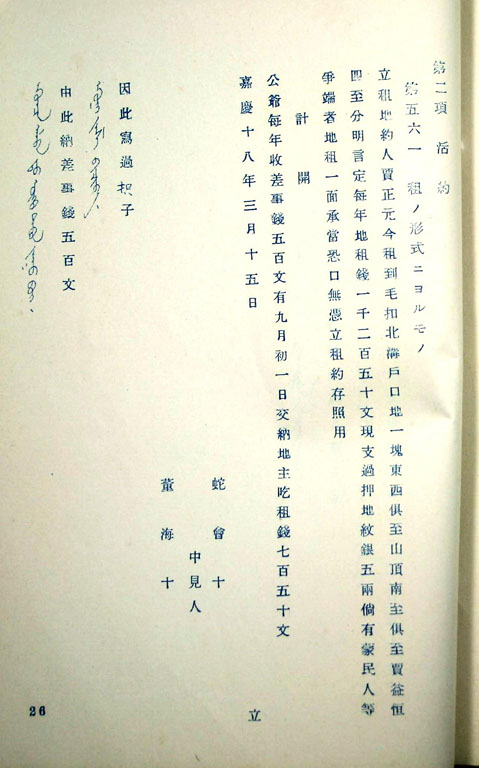 第二項 活約
第五六一 租ノ形式ニヨルモノ
立租地約人賈正元今租到毛扣北溝戶口地一塊東西俱至山頂南至俱至賈益恒
四至分明言定每年地租錢一千二百五十文現支過押地紋銀五兩倘有蒙民人等
爭端者地租一面承當恐口無憑立租約存照用
計開
公爺每年收差事錢五百文有九月初一日交納地主吃租錢七百五十文
嘉慶十八年三月十五日 立
蛇會十
中見人
董海十
因此寫過 子
由此納差事錢五百文
26